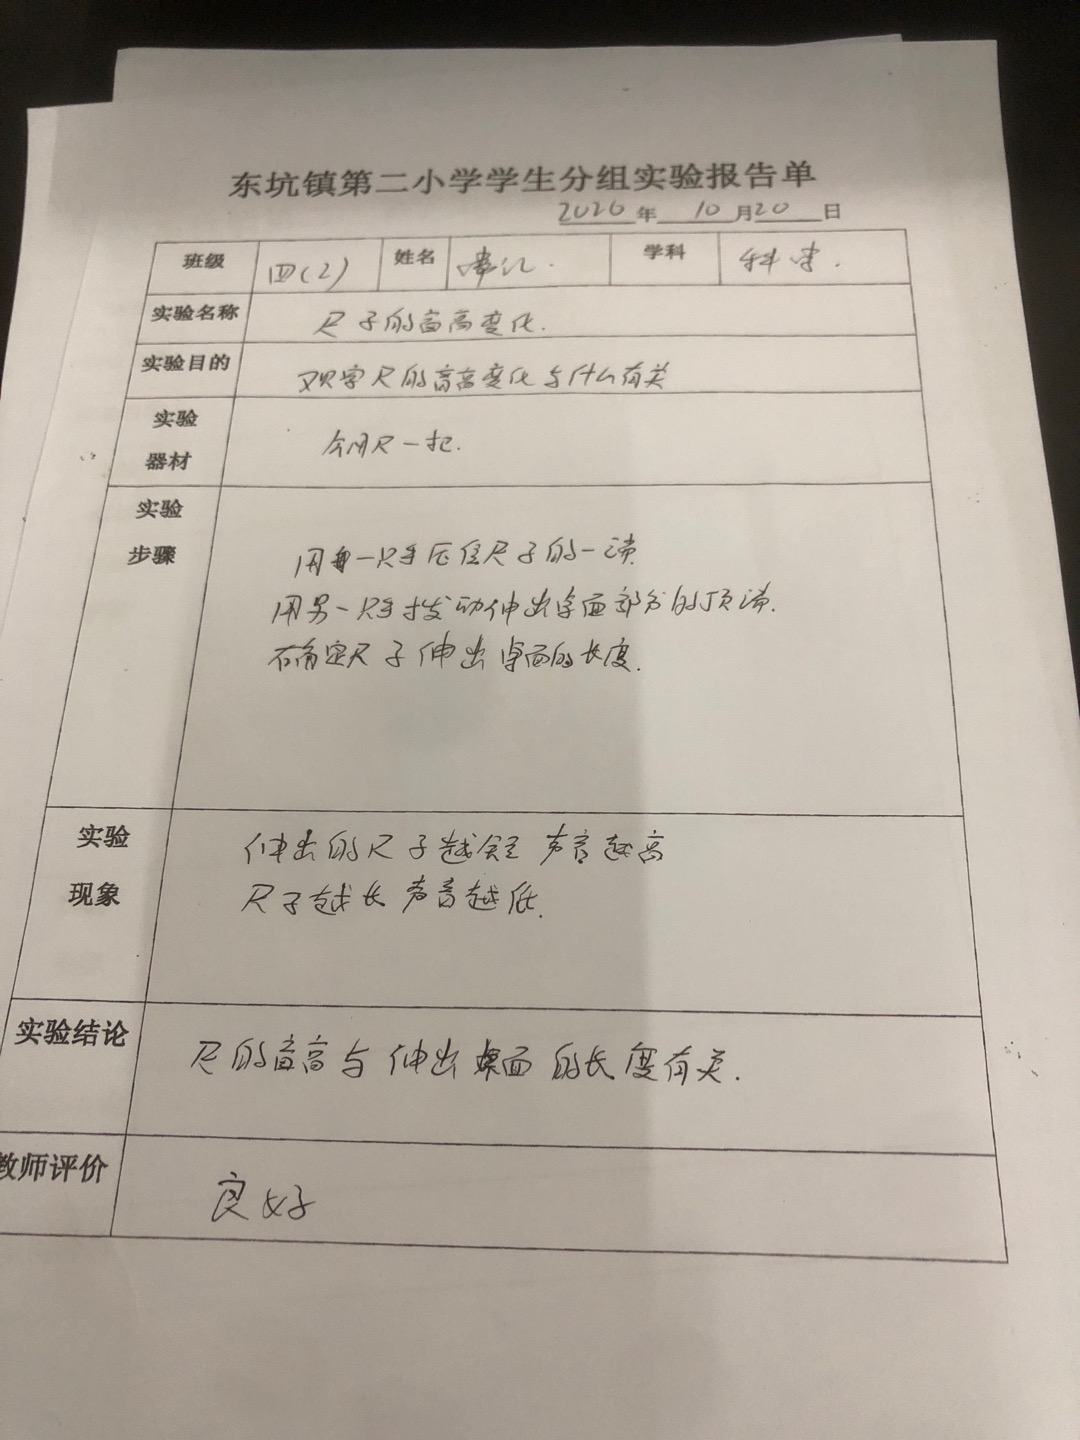 东坑镇第二小学学生分组实验报告单
2020年 10 月20 日
班级 四(2) 姓名 学科 科学.
实验名称 尺子的音高变化.
实验目的 观察尺的音高变化与什么有关
实验器材 尺一把.
实验
步骤
用一只手压住尺子的一端
用另一只手拨动伸出桌面部分的顶端.
确定尺子伸出桌面的长度.
实验
现象
伸出的尺子越短 声音越高
尺子越长 声音越低.
实验结论 尺的音高与伸出桌面的长度有关.
教师评价 良好